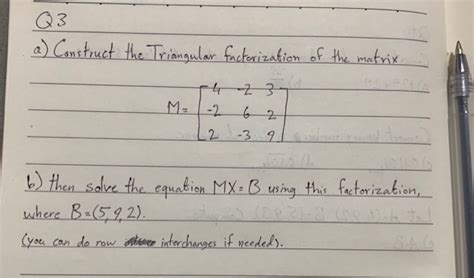 Q3
a) Construct the Triangular factorization of the matrix
4 -2 3
M= -2 6 2
2 -3 9
b) then solve the equation MX=B using this factorization,
where B=(5,9,2).
(you can do row interchanges if needed).